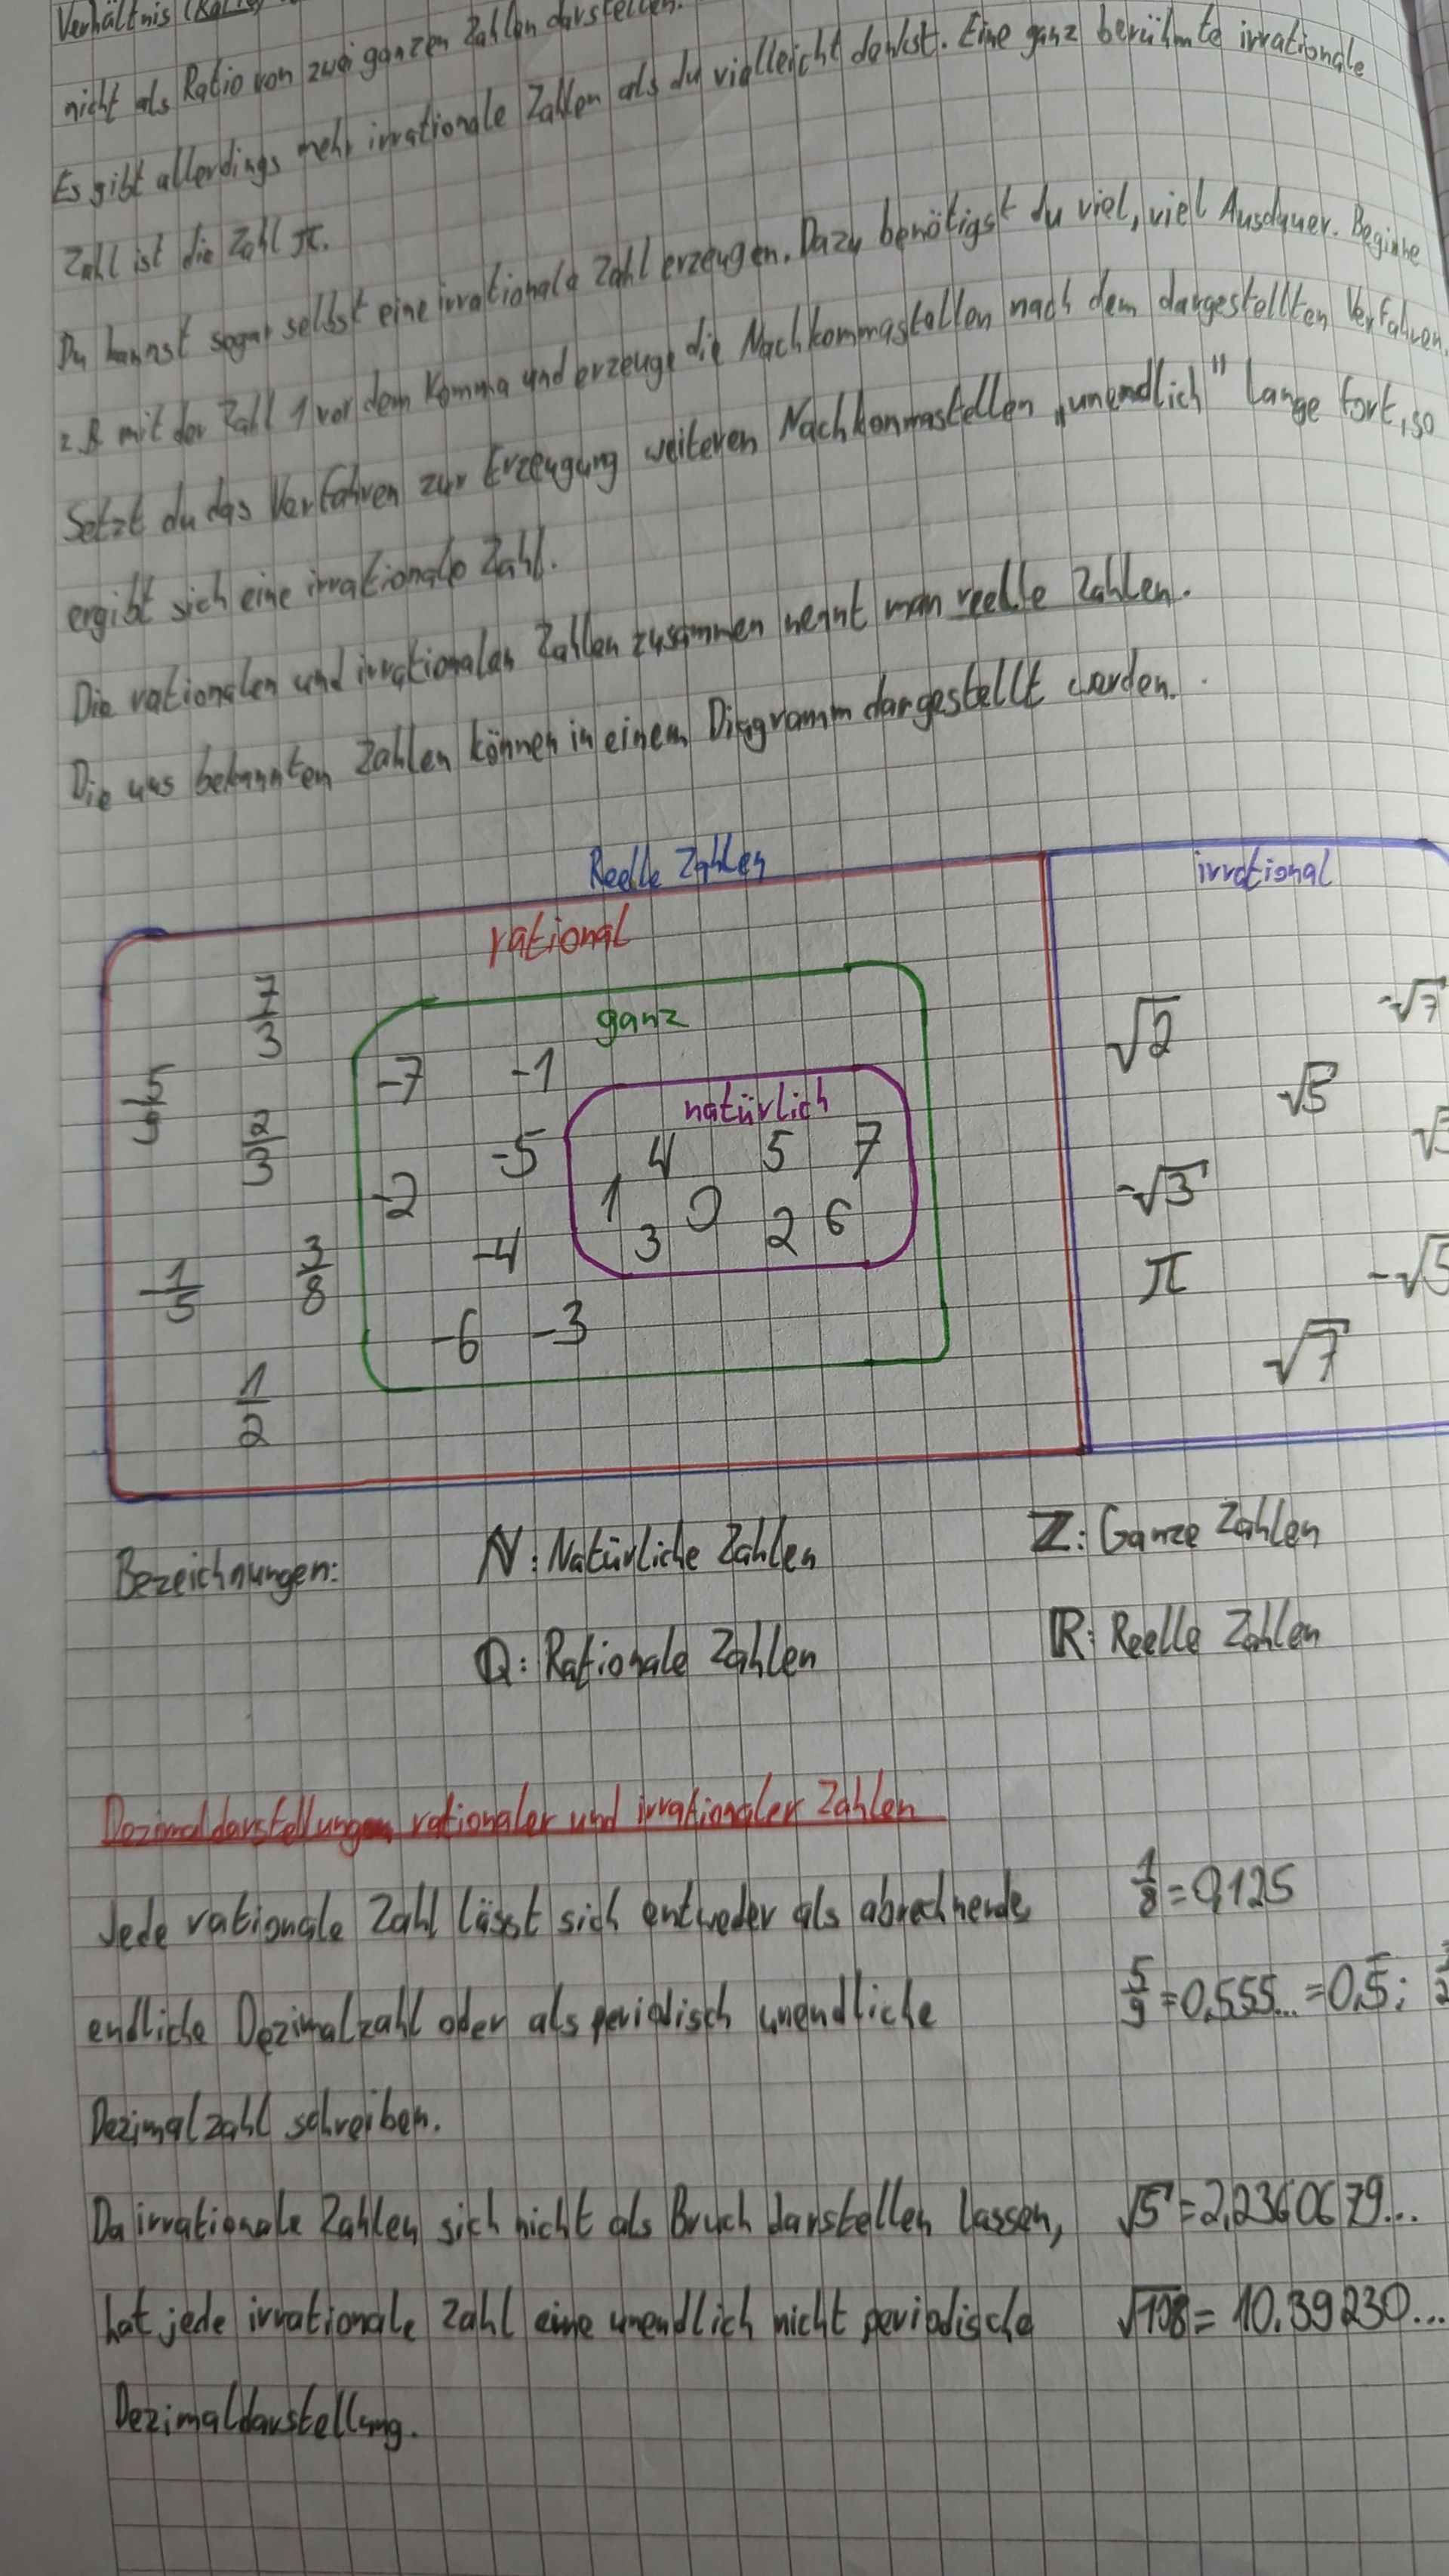 Verhältnis (Ratio)
nicht als Ratio von zwei ganzen Zahlen darstellen.
Es gibt allerdings mehr irrationale Zahlen als du vielleicht denkst. Eine ganz berühmte irrationale
Zahl ist die Zahl π.
Du kannst sogar selbst eine irrationale Zahl erzeugen. Dazu benötigst du viel, viel Ausdauer. Beginne
z.B mit der Zahl 1 vor dem Komma und erzeuge die Nachkommastellen nach dem dargestellten Verfahren.
Setzt du das Verfahren zur Erzeugung weiteren Nachkommastellen „unendlich" lange fort, so
ergibt sich eine irrationale Zahl.
Die rationalen und irrationalen Zahlen zusammen nennt man reelle Zahlen.
Die uns bekannten Zahlen können in einem Diagramm dargestellt werden.
Reelle Zahlen
rational
irrational
ganz
natürlich
7/3
5/9
2/3
-1/5
3/8
1/2
-7 -1
-5
-2
-4
-6 -3
4 5 7
1 0 2 6
3
√2
-√7
√5
-√3
π
-√5
√7
Bezeichnungen: ℕ: Natürliche Zahlen ℤ: Ganze Zahlen
ℚ: Rationale Zahlen ℝ: Reelle Zahlen
Dezimaldarstellungen rationaler und irrationaler Zahlen
Jede rationale Zahl lässt sich entweder als abrechende 1/8 = 0,125
endliche Dezimalzahl oder als periodisch unendliche 5/9 = 0,555... = 0,5̅;
Dezimalzahl schreiben.
Da irrationale Zahlen sich nicht als Bruch darstellen lassen, √5 = 2,2360679...
hat jede irrationale Zahl eine unendlich nicht periodische √108 = 10,39230...
Dezimaldarstellung.